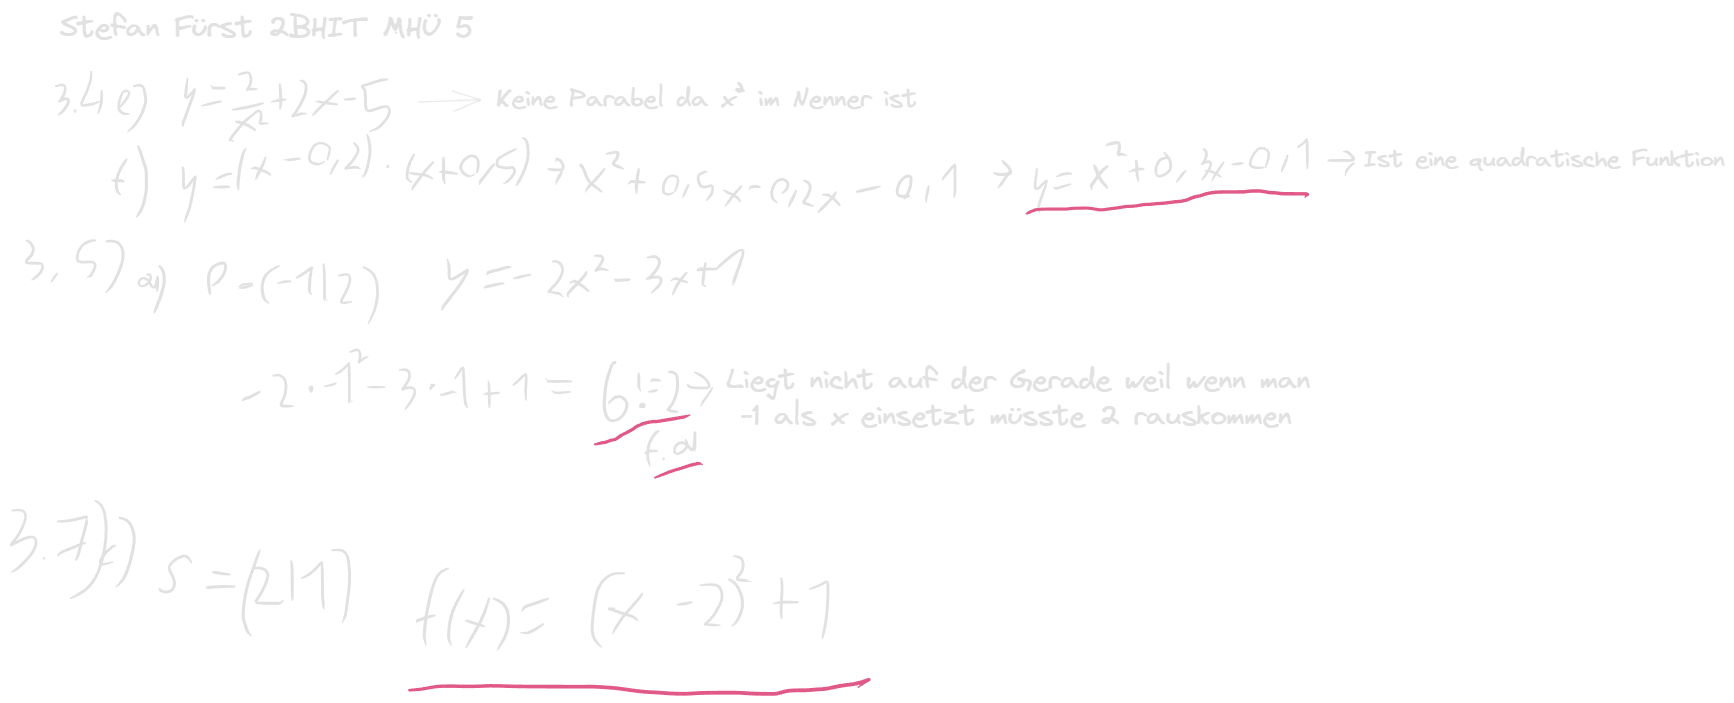 Stefan Fürst 2BHIT MHÜ 5
3.4 e) y = 2/x² + 2x - 5 → Keine Parabel da x² im Nenner ist
f) y = (x - 0,2) · (x + 0,5) → x² + 0,5x - 0,2x - 0,1 → y = x² + 0,3x - 0,1 → Ist eine quadratische Funktion
3,5) a) P = (-1|2) y = -2x² - 3x + 1
-2 · -1² - 3 · -1 + 1 = 6 != 2 → Liegt nicht auf der Gerade weil wenn man
-1 als x einsetzt müsste 2 rauskommen
f. a
3.7) S = (2|1) f(x) = (x - 2)² + 1